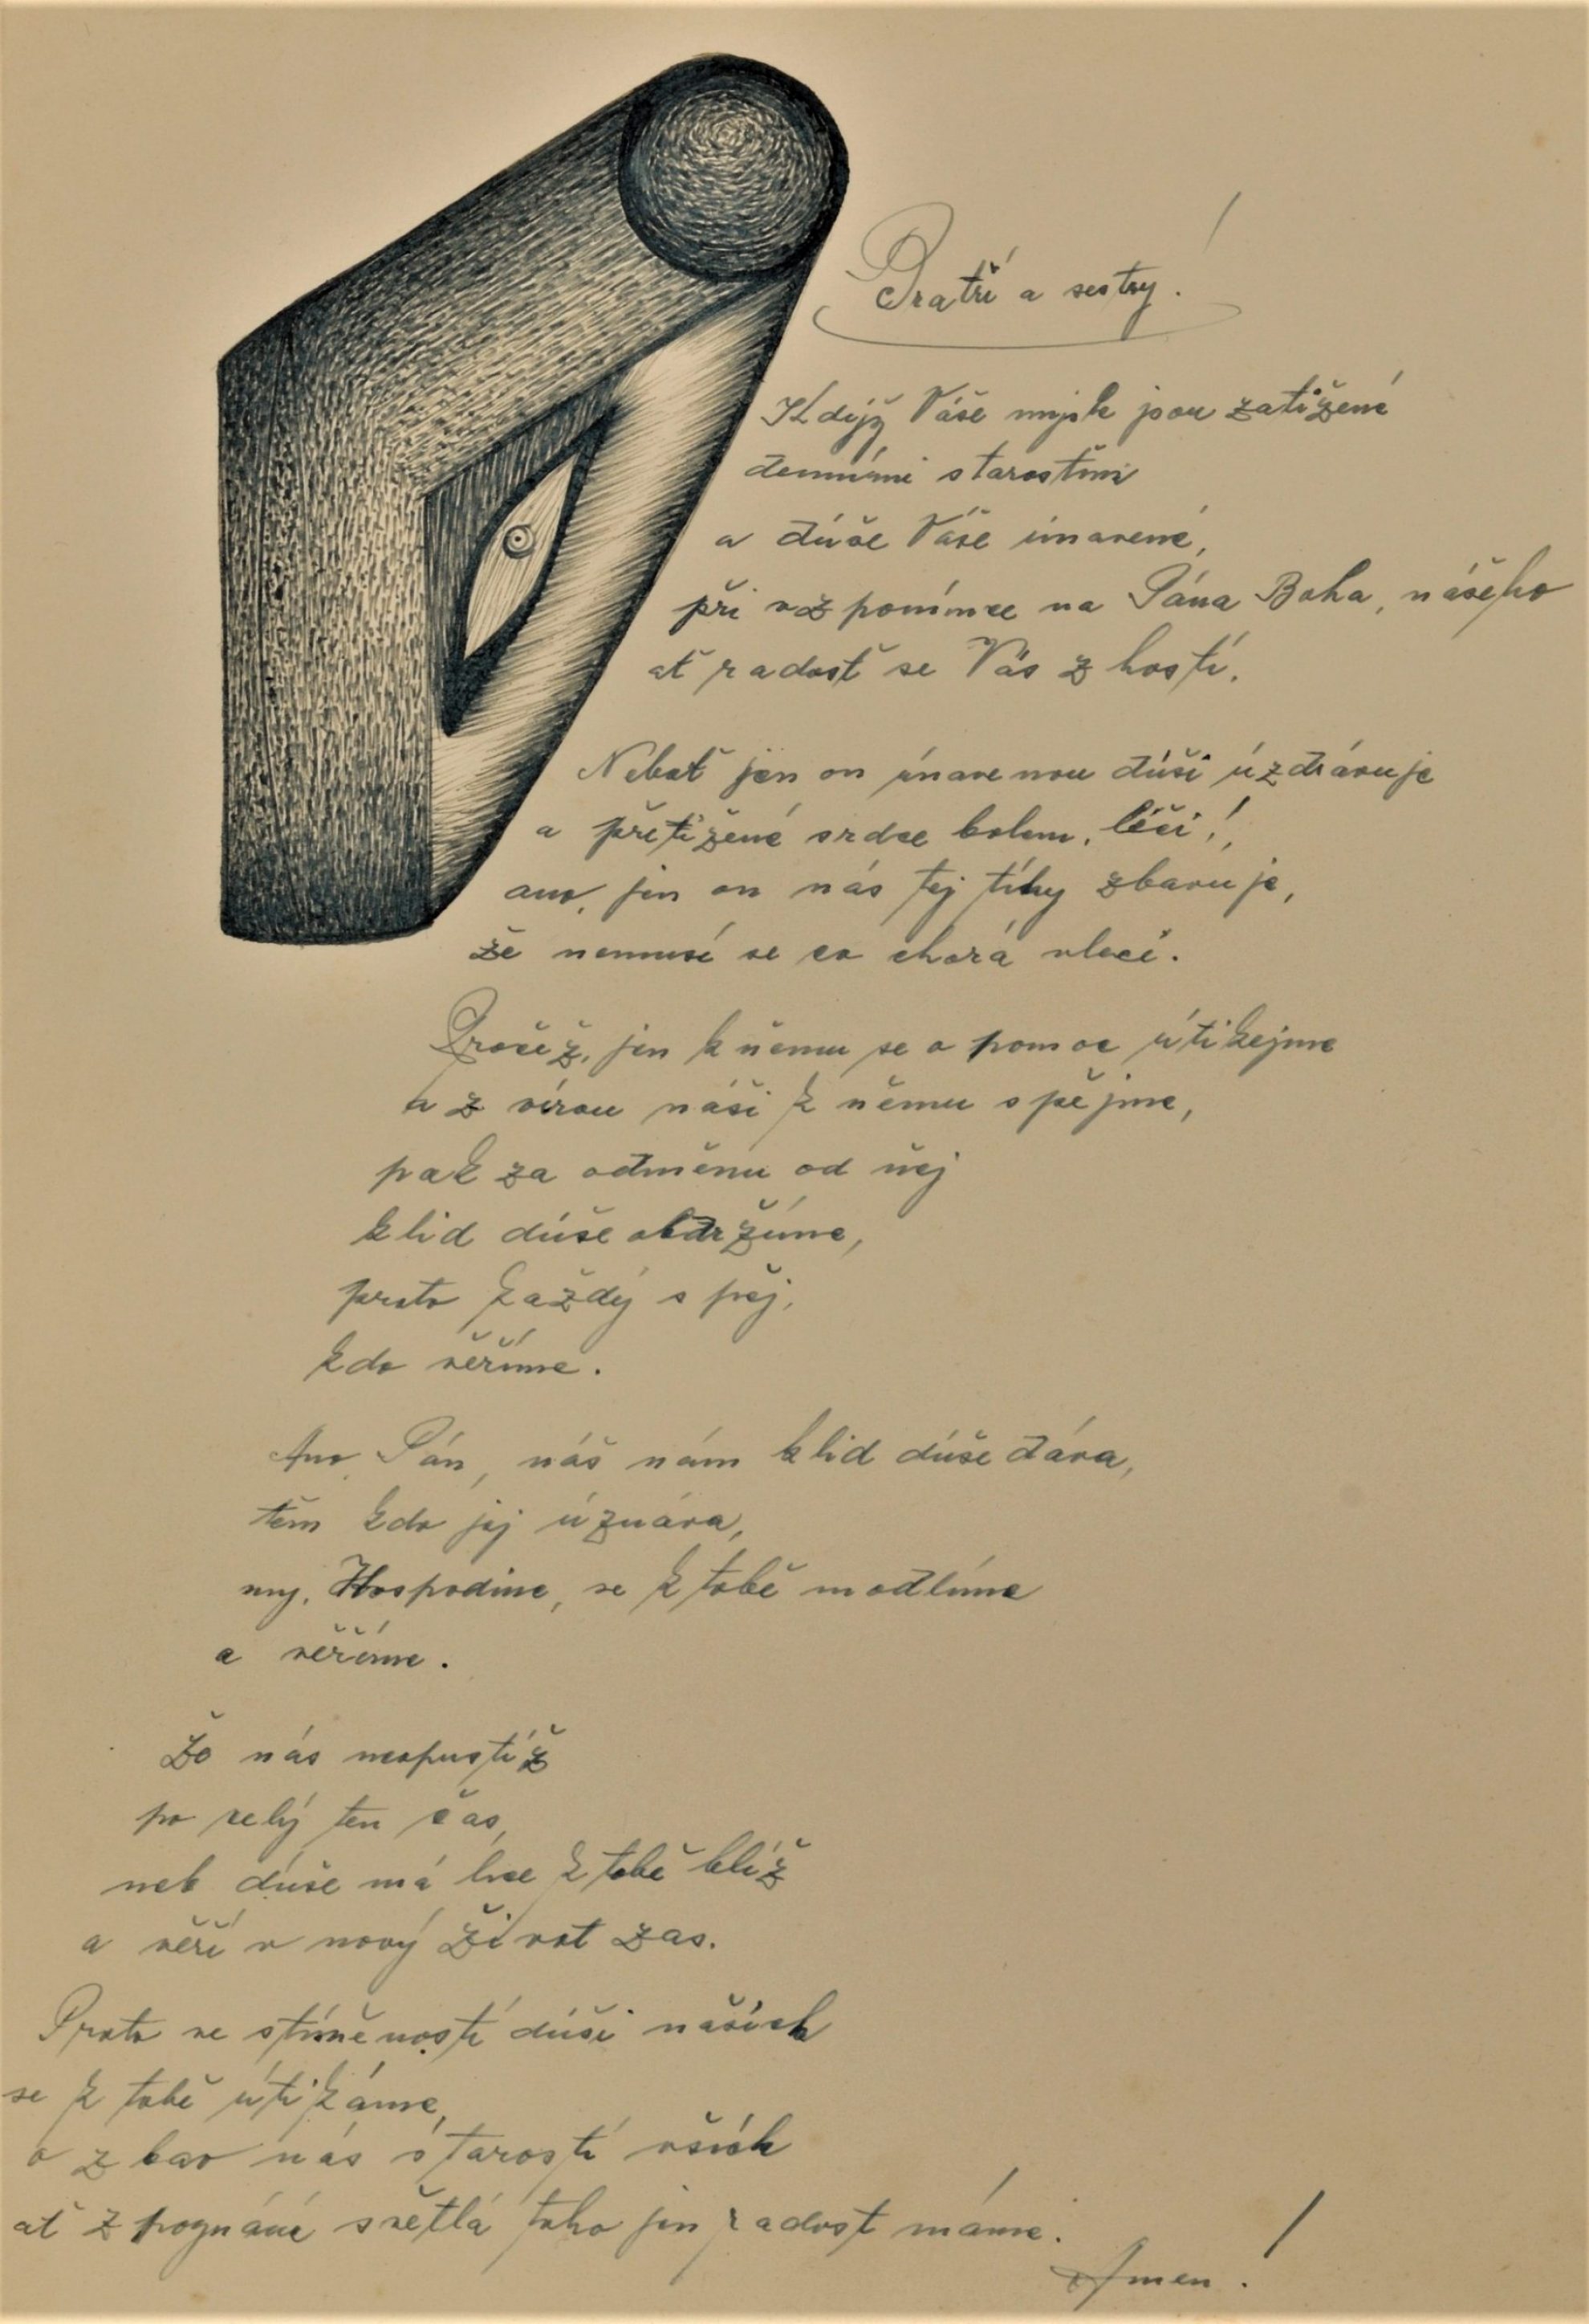 Bratří a sestry!
Kdýž Váše mysle jsou zatížené
denními starostmi
a dúše Váše únavené,
při vzpomínce na Pána Boha, nášeho
ať radosť se Vás zhostí.
Neboť jen on únavenou dúši úzdrávuje
a přetížené srdce bolem, léčí!,
ano, jen on nás tej tíhy zbavuje,
že nemusí se co chorá vléci.
Pročež, jen k němu se o pomoc útíkejme
a z vírou náši k němu spějme,
pak za odměnu od něj
klid dúše obdržíme,
proto každý spěj,
kdo věříme.
Ano, Pán, náš nám klid dúše dává,
těm kdo jej úznává,
my, Hospodine, se k tobě modlíme
a věříme.
Že nás neopustíž
po celý ten čas,
neb dúše má lne k tobě blíž
a věří v nový život zas.
Proto ve stísněností dúši nášich
se k tobě útíkáme,
o zbav nás starostí všéch
ať z poznání světlá toho jen radost máme.
Amen!